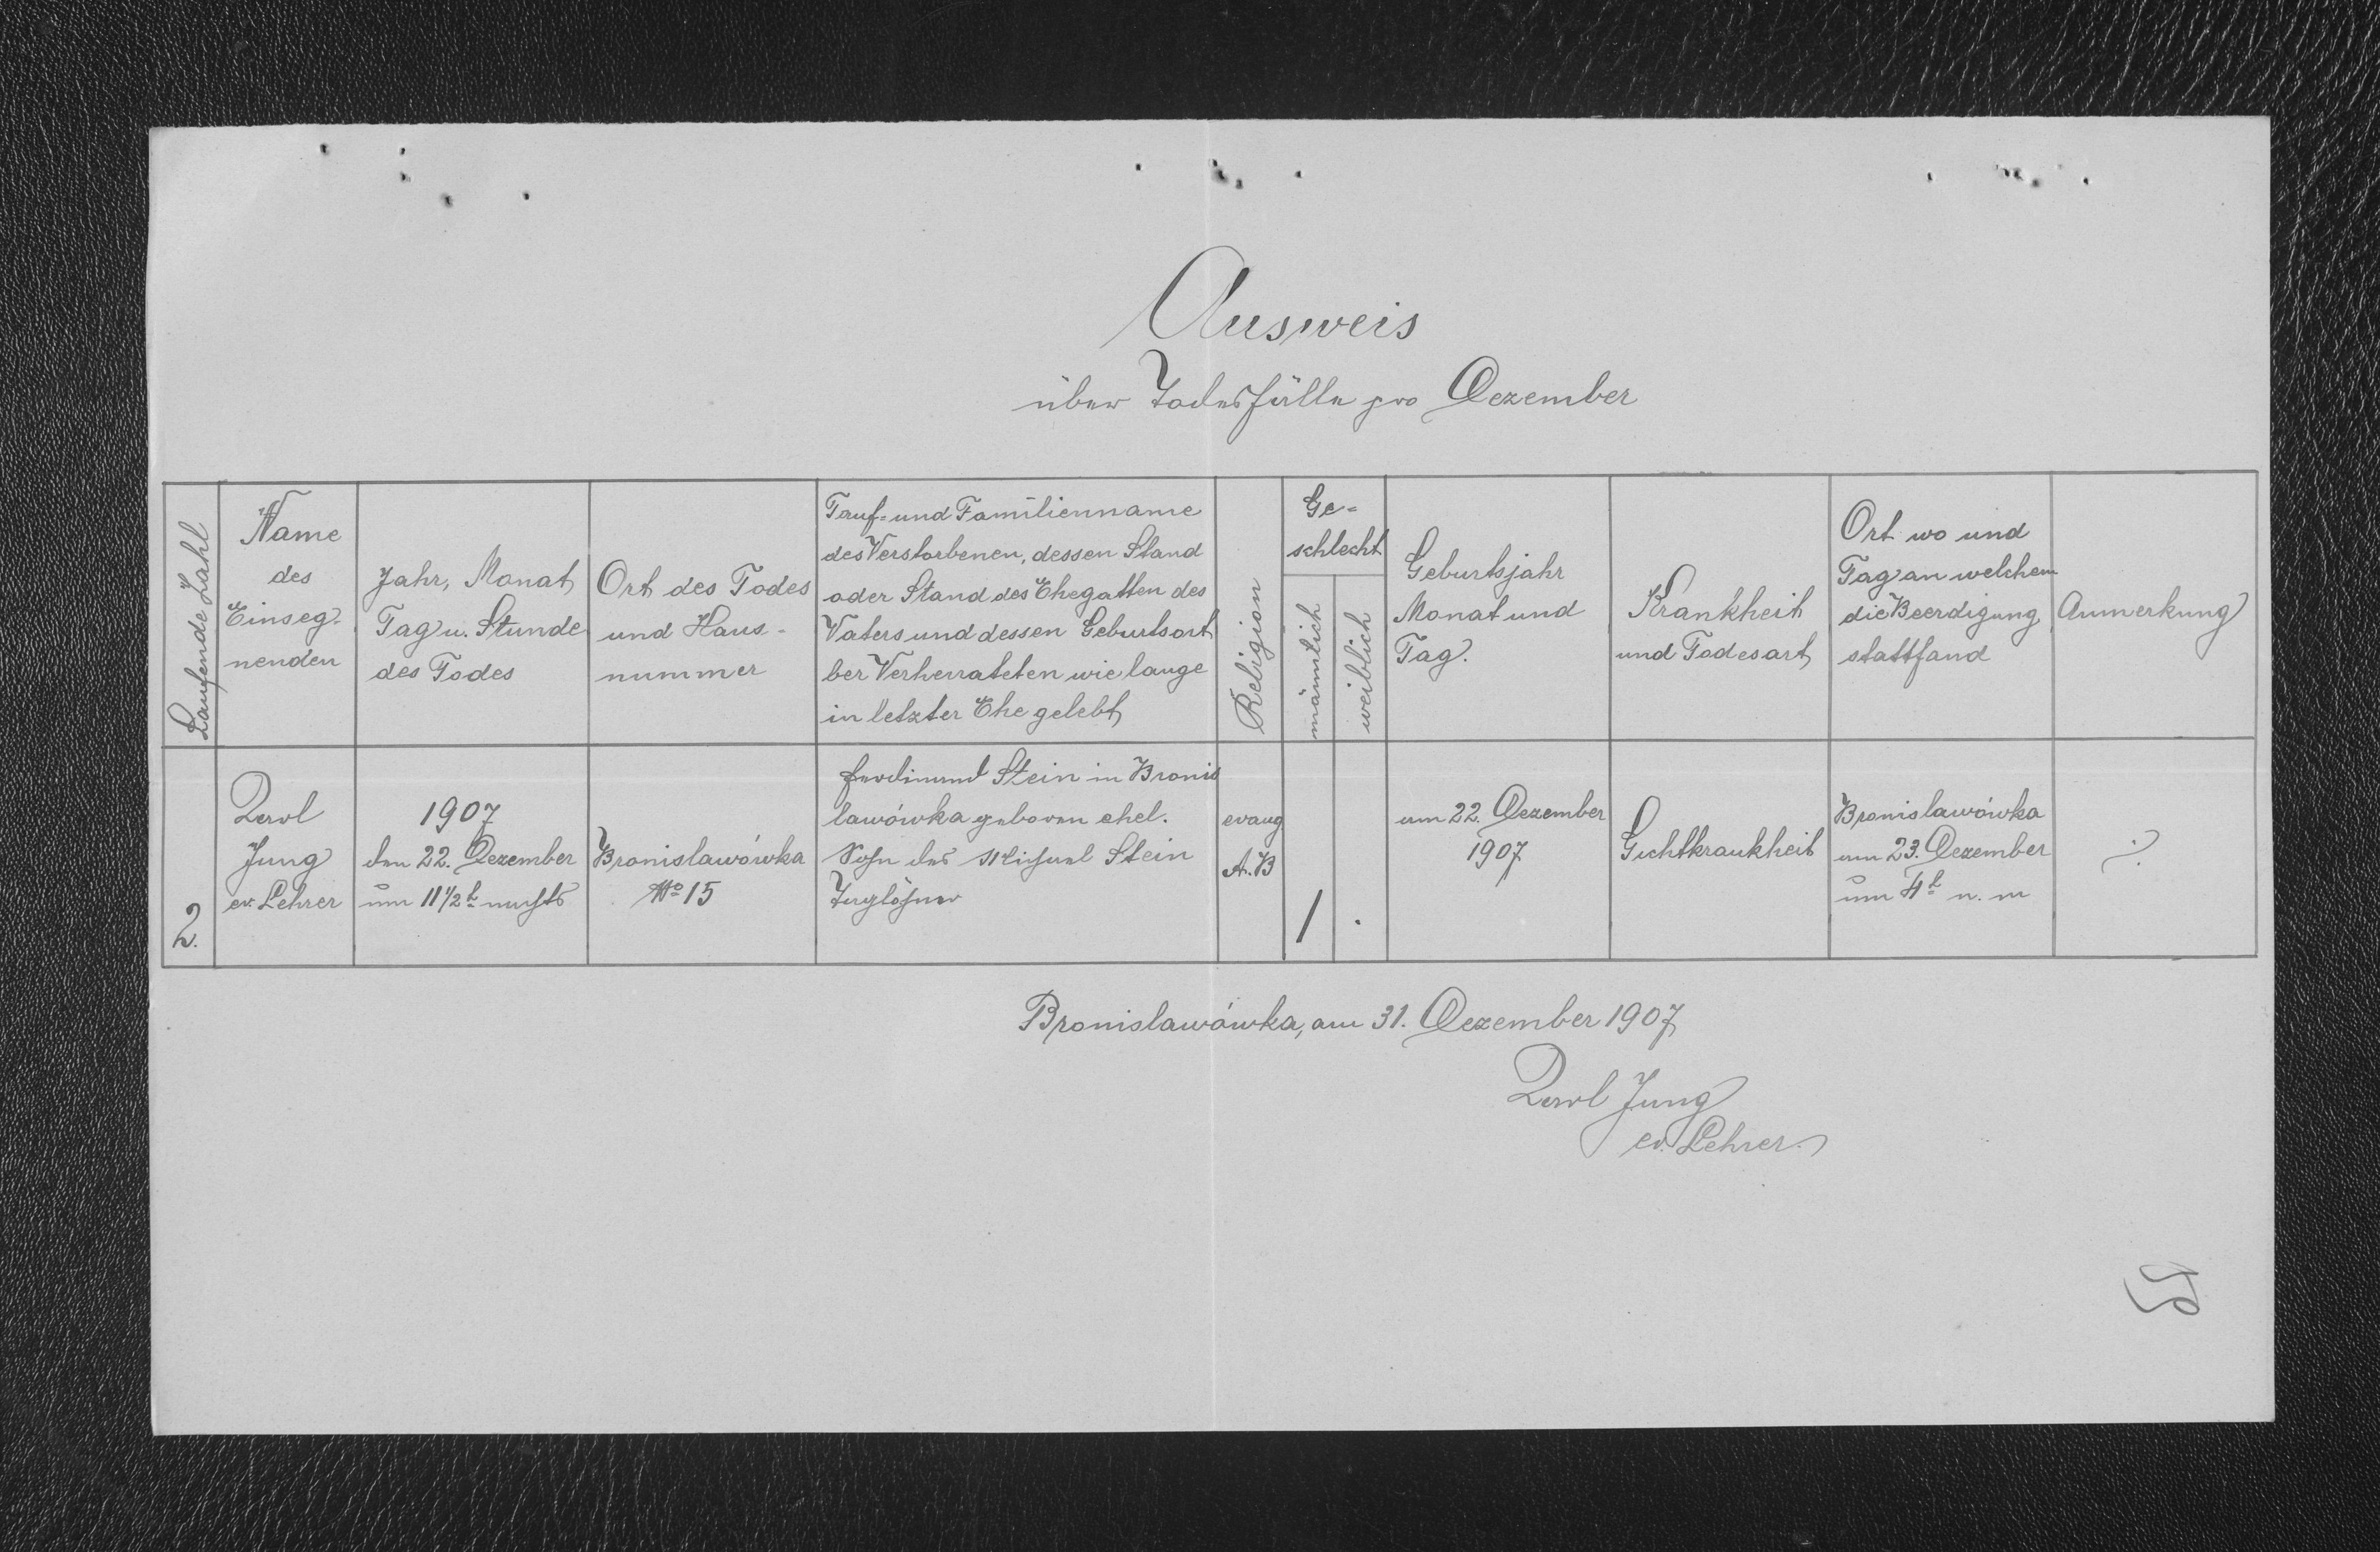 Ausweis
über Todesfälle pro Dezember
Laufende Zahl
Name
des
Einseg-
nenden
Jahr, Monat
Tag u. Stunde
des Todes
Ort des Todes
und Haus-
nummer
Tauf- und Familienname
des Verstorbenen, dessen Stand
oder Stand des Ehegatten des
Vaters und dessen Geburtsort
ber Verheirateten wie lange
in letzter Ehe gelebt
Religion
Ge-
schlecht
männlich
weiblich
Geburtsjahr
Monat und
Tag.
Krankheit
und Todesart
Ort wo und
Tag an welchem
die Beerdigung
stattfand
Anmerkung
2.
Karl
Jung
ev. Lehrer
1907
den 22. Dezember
um 11 1/2 h nachts
Bronislawówka
No 15
Ferdinand Stein in Bronis
lawówka geboren ehel.
Sohn des Michael Stein
Taglöhner
evang
A.B
1
.
am 22. Dezember
1907
Gichtkrankheit
Bronislawówka
am 23. Dezember
um 4h n. m
./.
Bronislawówka, am 31. Dezember 1907
Karl Jung
ev. Lehrer.